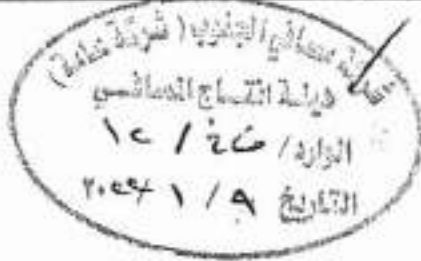 شركة مصافي الجنوب (شركة عامة)
هيأة انتاج المصافي
الوارد/ خ ف / ١٢
التاريخ ٩ / ١